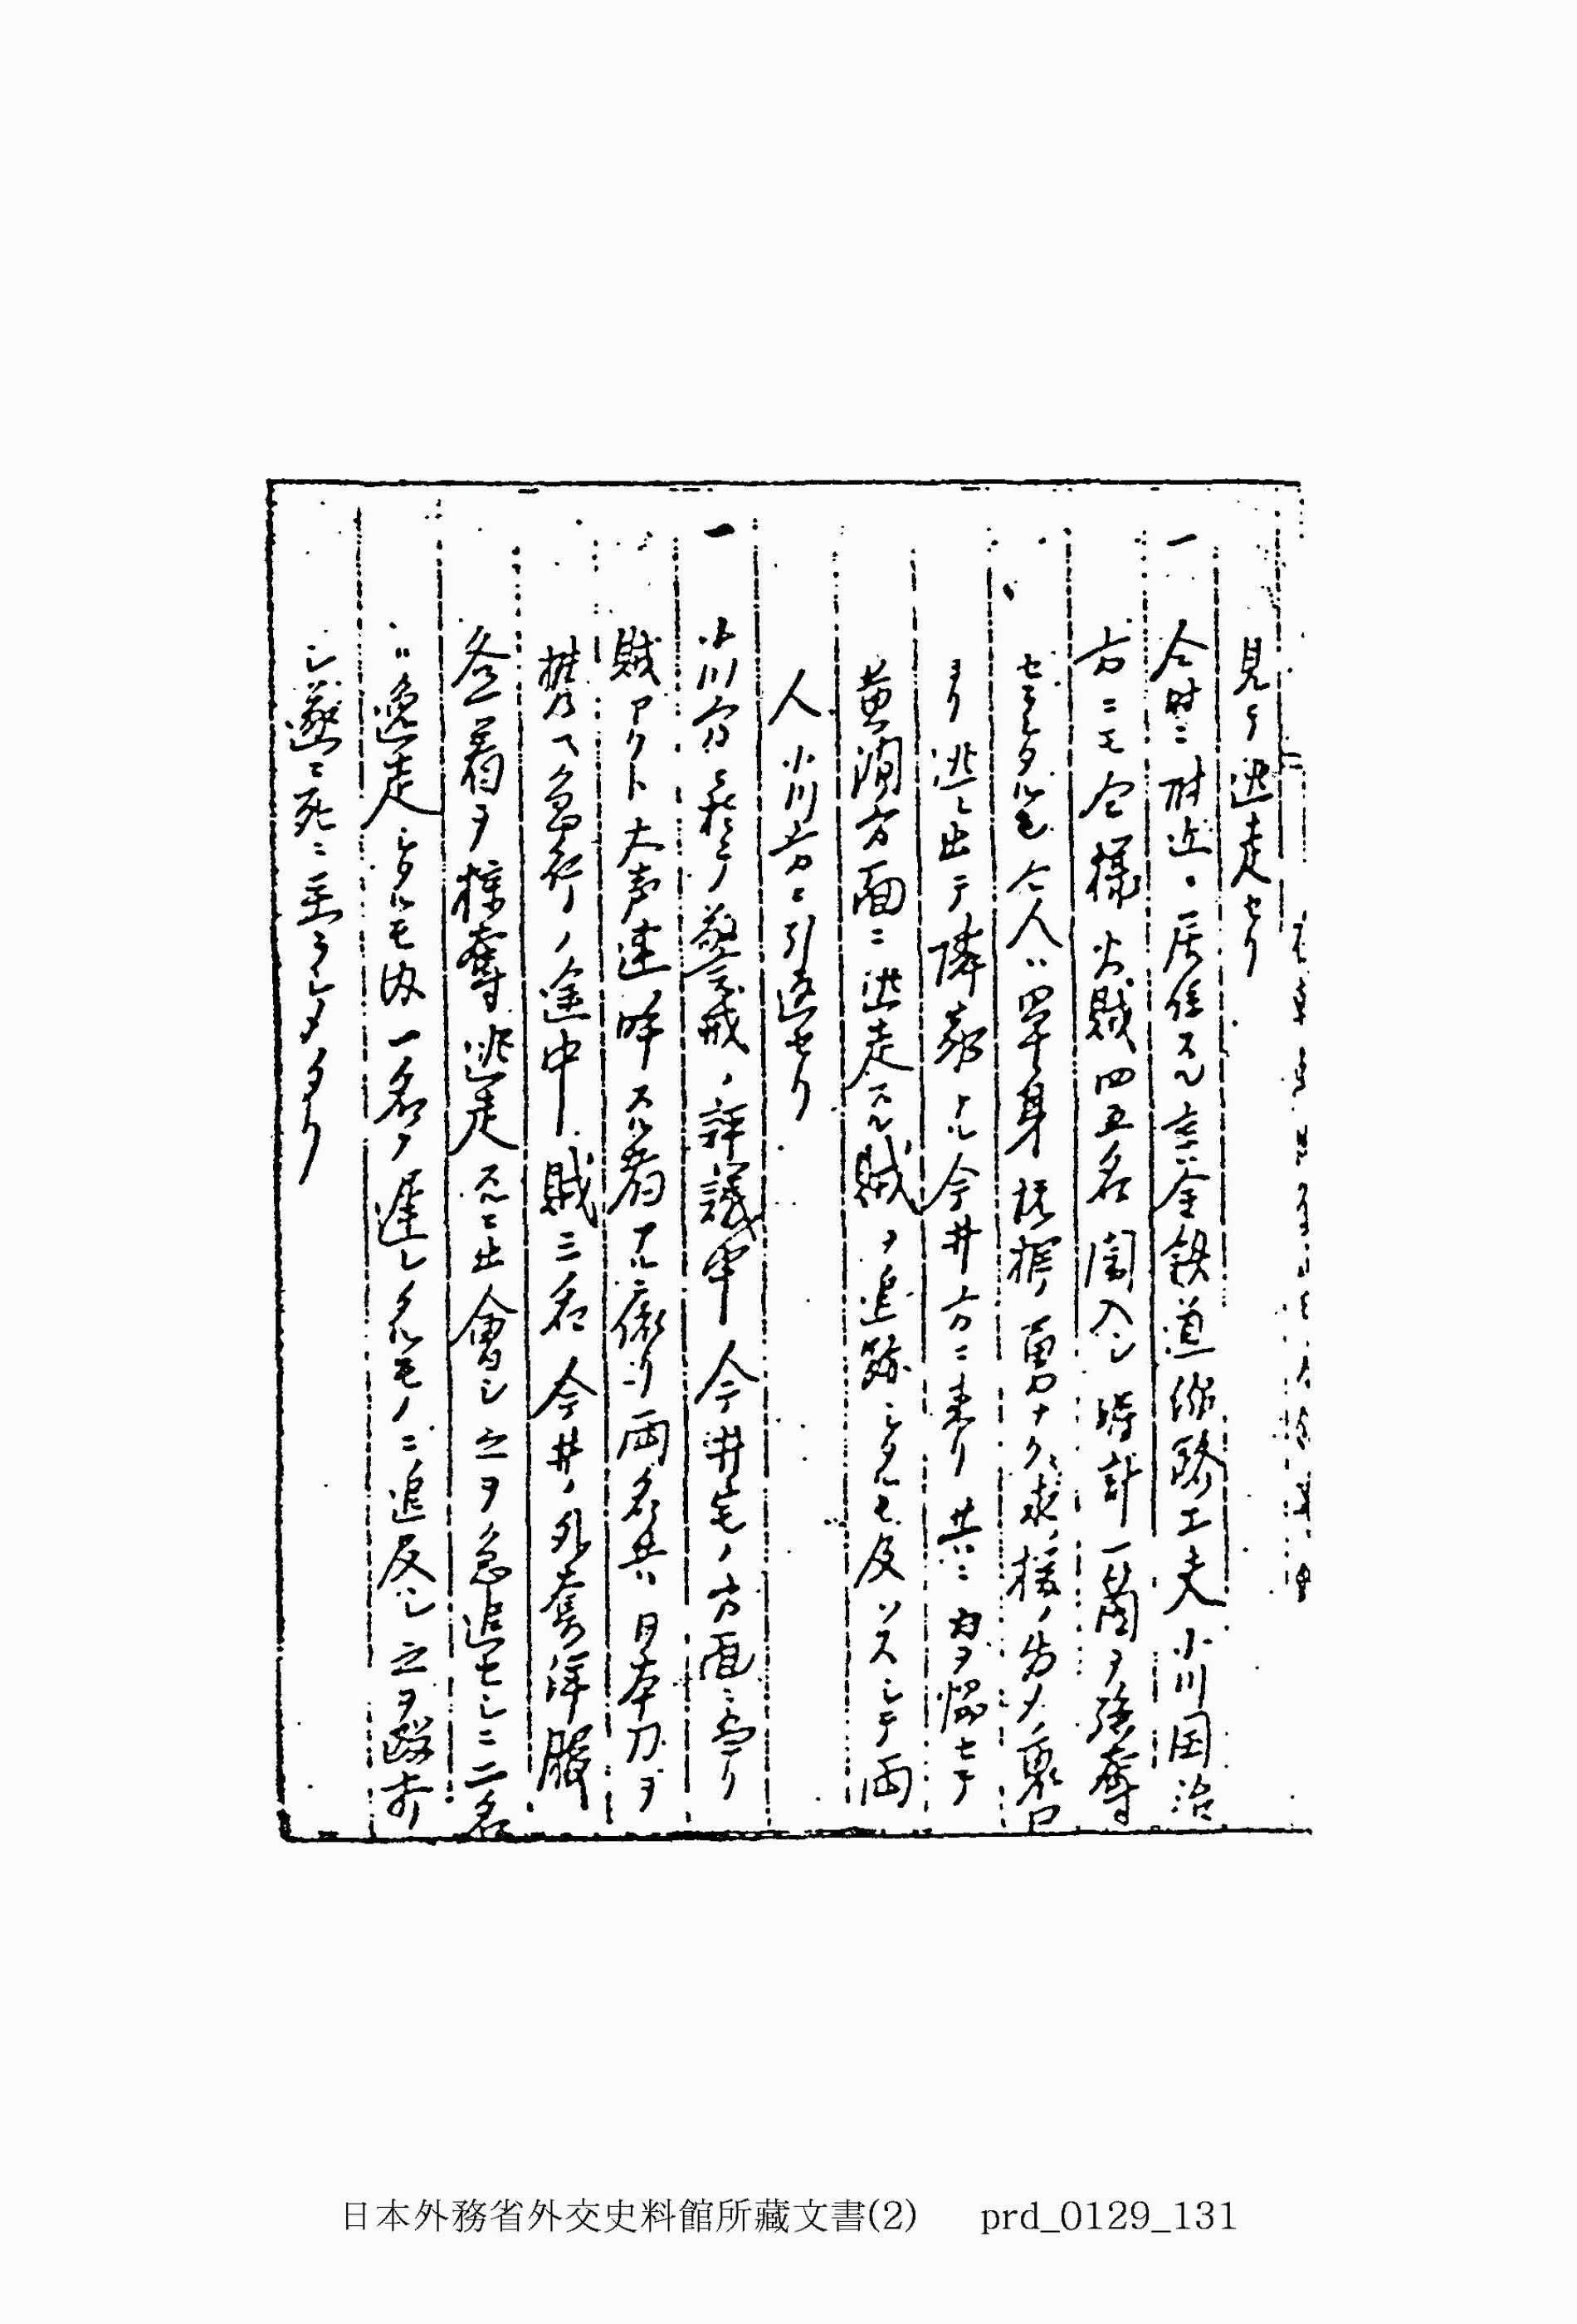 見テ逃走セリ
一 仝時ニ附近ニ居住スル京釜鉄道線路工夫小川国治
方ニモ仝様火賊四五名闖入シ時計一箇ヲ強奪
セシタルモ仝人ハ単身抵抗ノ勇ナク求援ノ為メ裏口
ヨリ逃レ出テ隣家ナル今井方ニ来リ共ニ力ヲ協セテ
黄澗方面ニ逃走スル賊ヲ追跡シタルモ及ハスシテ両
人小川方ニ引返セリ
一 小川方ニ於テ警戒ノ評議中今井宅ノ方面ニ当リ
賊アリト大声連呼スル者アルニ依リ両名共日本刀ヲ
携ヘ急行ノ途中賊三名今井ノ外套洋服
全着ヲ掠奪逃走スルニ出會シ之ヲ急追セシニ二名
ハ逸走シタルモ内一名ノ遅レタルモノニ追及シ之ヲ殴打
シ遂ニ死ニ至ラシメタリ
日本外務省外交史料館所藏文書(2) prd_0129_131